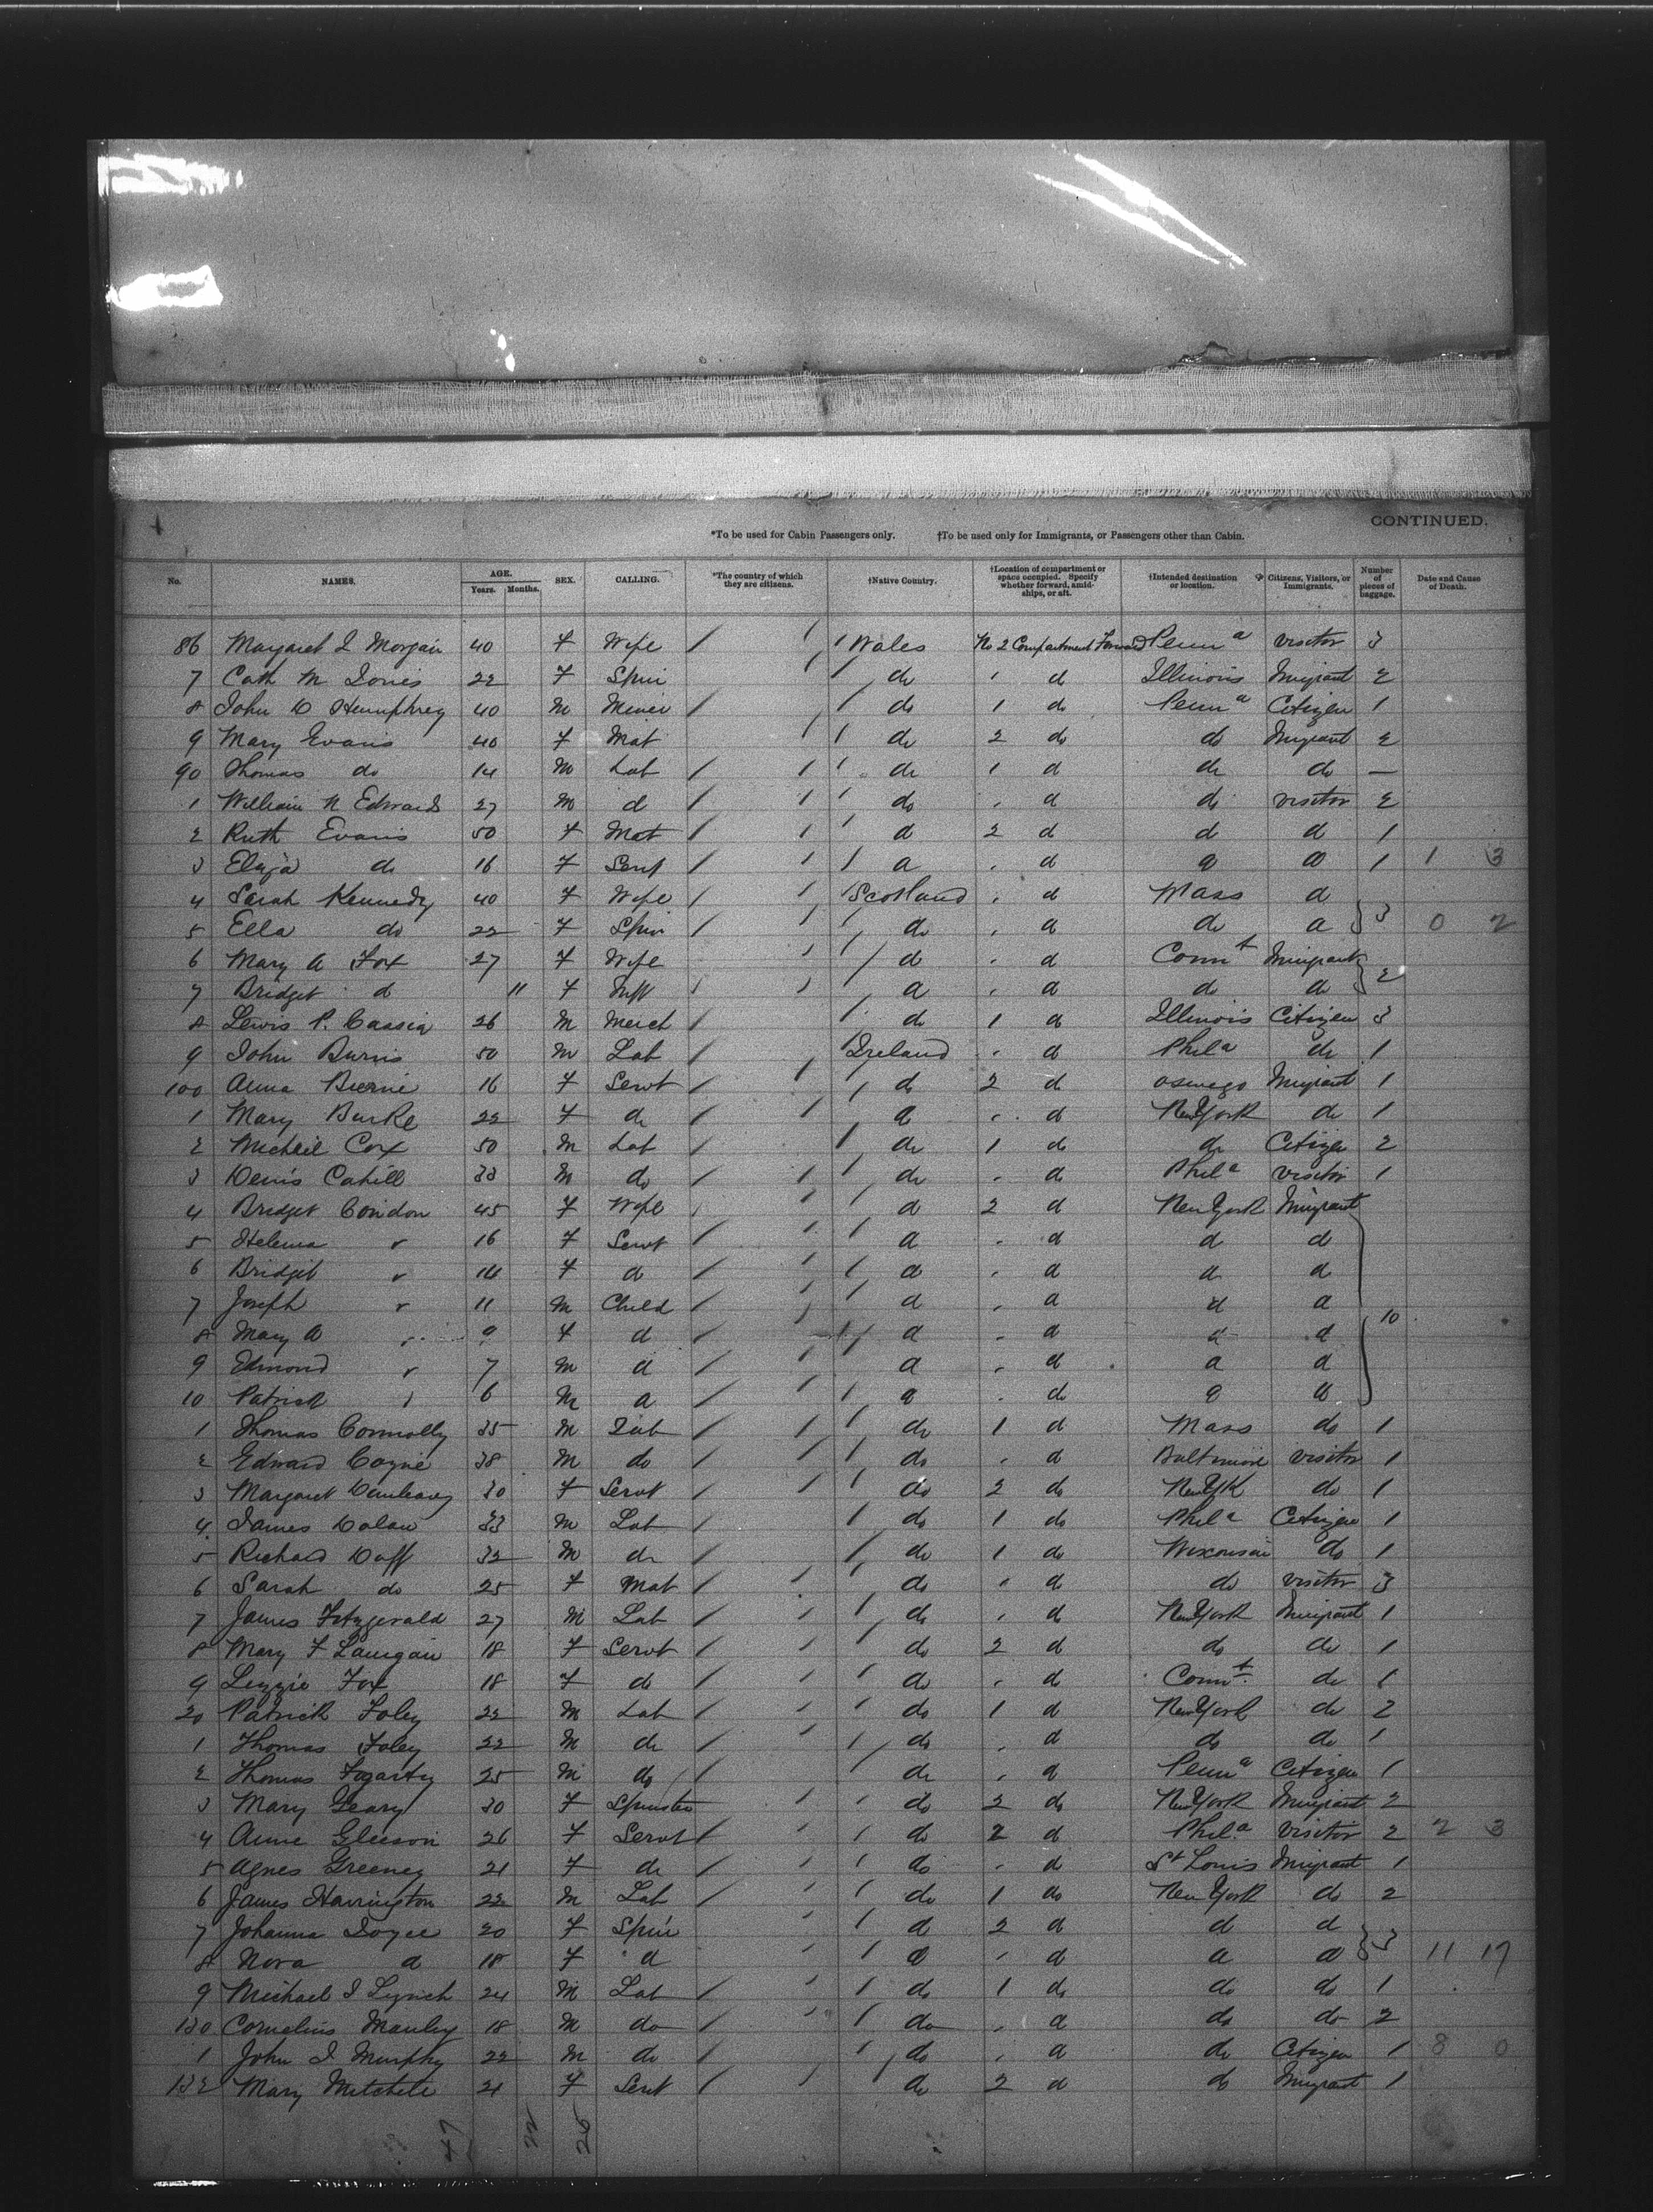 CONTINUED.
*To be used for Cabin Passengers only. †To be used only for Immigrants, or Passengers other than Cabin.
No. NAMES. AGE. Years. Months. SEX. CALLING. *The country of which they are citizens. †Native Country. †Location of compartment or space occupied. Specify whether forward, amidships, or aft. †Intended destination or location. Citizens, Visitors, or Immigrants. Number of pieces of baggage. Date and Cause of Death.
86 Margaret J Morgan 40 F Wife Wales No 2 Compartment Forward Penna visitor 3
7 Cath M Jones 22 F Spin do " d Illinois Imigrant 2
8 John D Humphrey 40 M Miner do 1 do Penna Citizen 1
9 Mary Evans 40 F Mat do 2 do do Imigrant 2
90 Thomas do 14 M Lab do 1 d do do —
1 William N Edwards 27 M d do " d do visitor 2
2 Ruth Evans 50 F Mat d 2 d d d 1
3 Eliza do 16 F Servt d " d d d 1 1 3
4 Sarah Kennedy 40 F Wife Scotland " d Mass d
5 Ella do 22 F Spin do " d do d 3 0 2
6 Mary A Fox 27 F Wife d " d Connt Imigrant
7 Bridget d 11 F Inft d " d do d 2
8 Lewis P. Cassin 26 M Merch do 1 d Illinois Citizen 3
9 John Burns 50 M Lab Ireland " d Phila do 1
100 Anna Birnie 16 F Servt do 2 d Oswego Imigrant 1
1 Mary Burke 22 F do d " d New York do 1
2 Micheil Cox 50 M Lab do 1 do do Citizen 2
3 Denis Cahill 33 M do do " d Phila visitor 1
4 Bridget Condon 45 F Wife d 2 d New York Imigrant
5 Helena " 16 F Servt d " d d d
6 Bridget " 14 F d d " d d d
7 Joseph " 11 M Child d " d d d
8 Mary A " 9 F d d " d d d 10
9 Edmond " 7 M d d " d d d
10 Patrick " 6 M d d " do d d
1 Thomas Connolly 35 M Lab do 1 d Mass do 1
2 Edward Coyne 38 M do do " d Baltimore visitor 1
3 Margaret Dunleavy 30 F Servt do 2 do New Yk do 1
4 James Dolan 33 M Lab do 1 do Phila Citizen 1
5 Richard Duff 32 M do do 1 do Wisconsin do 1
6 Sarah do 25 F Mat do " d do visitor 3
7 James Fitzgerald 27 M Lab do " d New York Imigrant 1
8 Mary F Lanigan 18 F Servt do 2 d do do 1
9 Lizzie Fox 18 F do do " d Connt. do 1
20 Patrick Foley 22 M Lab do 1 d New York do 2
1 Thomas Foley 22 M do do " d do do 1
2 Thomas Fogarty 25 M do do " d Penna Citizen 1
3 Mary Geary 30 F Spinster do 2 do New York Imigrant 2
4 Anne Gleeson 26 F Servt do 2 d Phila visitor 2 2 3
5 Agnes Greeney 21 F do do " d St Louis Imigrant 1
6 James Harrington 22 M Lab do 1 do New York do 2
7 Johanna Joyce 20 F Spin d 2 d d d
8 Nora d 18 F d d " d d d 3 11 17
9 Michael J Lynch 24 M Lab do 1 do do do 1
130 Cornelius Manley 18 M do do " d do do 2
1 John J Murphy 22 M do do " d do Citizen 1 8 0
132 Mary Mitchell 21 F Servt do 2 d do Imigrant 1
47 22 26